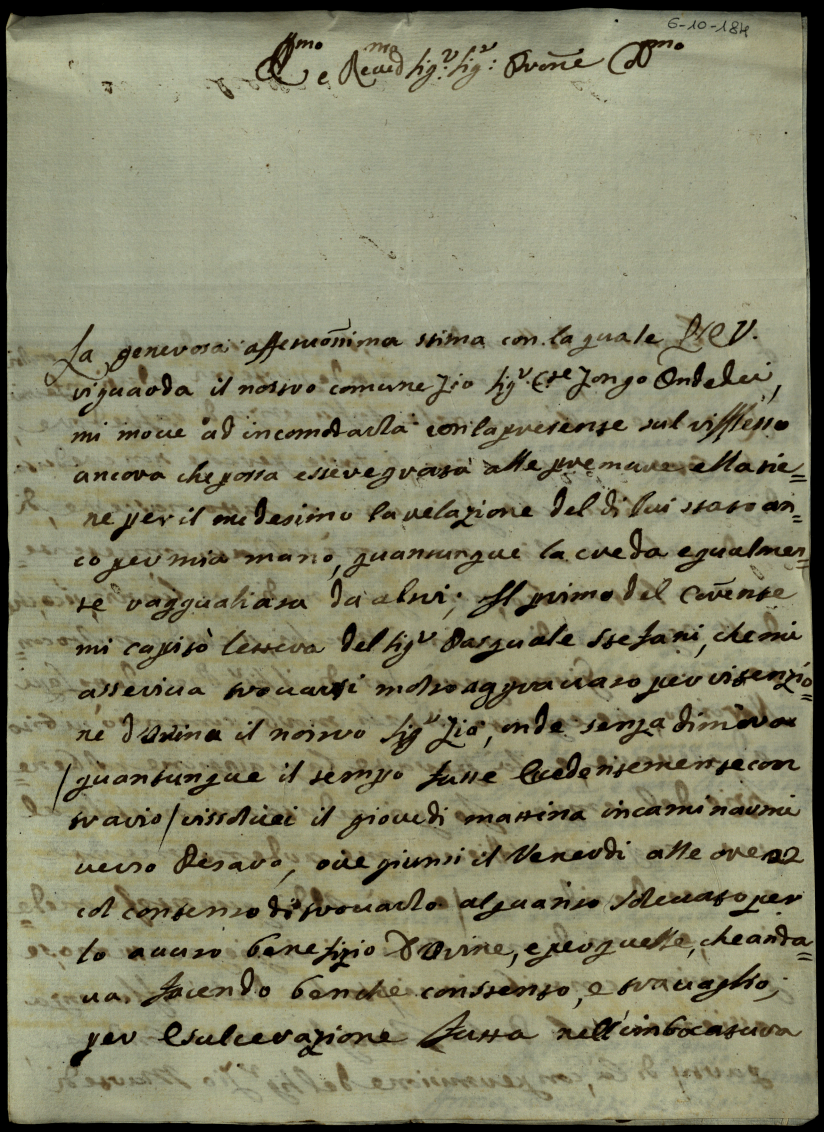 6-10-184
Ill.mo e Rev.mo Sig.r Sig.r Prone
La generosa affettuosissima stima con la quale
riguarda il nostro comune Zio Sig.r Ondedei,
mi move ad incomodarla con la presente sul riflesso
ancora che possa essere grata alle premure ella tie=
ne per il medesimo la relazione del di lui stato an=
co per mia mano, quantunque la creda egualmen=
te raggualiata da altri; Il primo del Corrente
mi capitò lettera del Sig.r Pasquale Stefani, che mi
asseriva trovarsi molto aggravato per ritenzio=
ne d'Orina il nostro Sig.r Zio, onde senza dimora
/quantunque il tempo fusse con
travio/ risolvei il giovedi mattina incaminarmi
verso Pesaro, ove giunsi il Venerdi alle ore 22
col contento di trovarlo alquanto solevato per
lo auuto benefizio d'Orine, e per quelle, che anda=
va facendo benche con stento, e travaglio,
per l'esulcerazione fatta nell'imbocatura